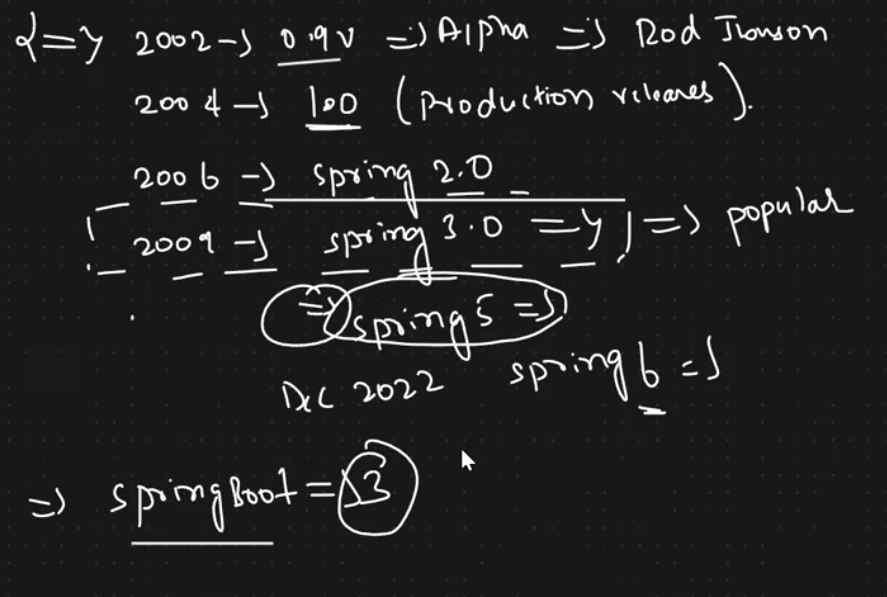 => 2002 -> 0.9v => Alpha => Rod Jhonson
2004 -> 1.0.0 (production releases).
2006 -> spring 2.0
2009 -> spring 3.0 => => popular
=> spring 5 =>
Dec 2022 spring 6 =>
=> spring Boot => 3